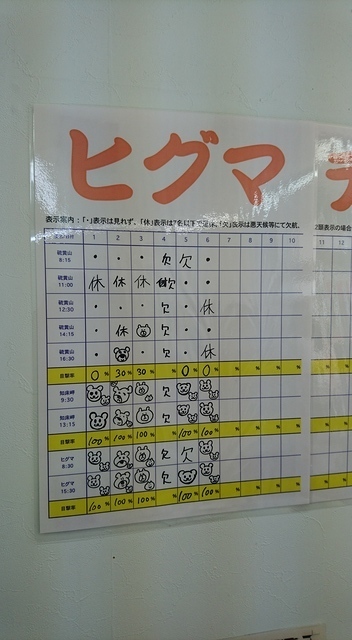 ヒグマ
表示案内:「・」表示は見れず、「休」表示は7名以下で運休、「欠」表示は悪天候等にて欠航。
1 2 3 4 5 6 7 8 9 10
硫黄山 8:15 ・ ・ ・ 欠 欠 ・
硫黄山 11:00 休 休 休 欠 ・ ・
硫黄山 12:30 ・ ・ ・ 欠 ・ 休
硫黄山 14:15 ・ 休 欠 ・ ・
硫黄山 16:30 ・ ・ 欠 ・ 休
目撃率 0% 30% 30% % 0% 0% % % % %
知床岬 9:30 欠
知床岬 13:15 欠
目撃率 100% 100% 100% % 100% 100% % % % %
ヒグマ 8:30 欠 欠
ヒグマ 15:30 欠
目撃率 100% 100% 100% % 100% 100% % % % %
11 12